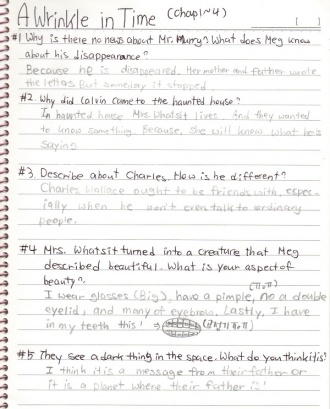 A Wrinkle in Time (chap1~4) [ ]
#1 Why is there no news about Mr. Murry? What does Meg know
about his disappearance?
Because he is disappeared. Her mother and father wrote
the letters. But someday it stopped.
#2. Why did Calvin came to the haunted house?
In haunted house Mrs. Whatsit lives. And they wanted
to know something. Because, she will know what he's
saying
#3. Describe about Charles. How is he different?
Charles Wallace ought to be friends with, espec-
ially when he won't even talk to ordinary
people.
#4 Mrs. Whatsit turned into a creature that Meg
described beautiful. What is your aspect of
beauty?
I wear glasses (Big), have a pimple, no a double
eyelid, and many of eyebrow. Lastly, I have
in my teeth this!
#5 They see a dark thing in the space. What do you think it is?
I think it is a message from their father or
it is a planet where their father is!